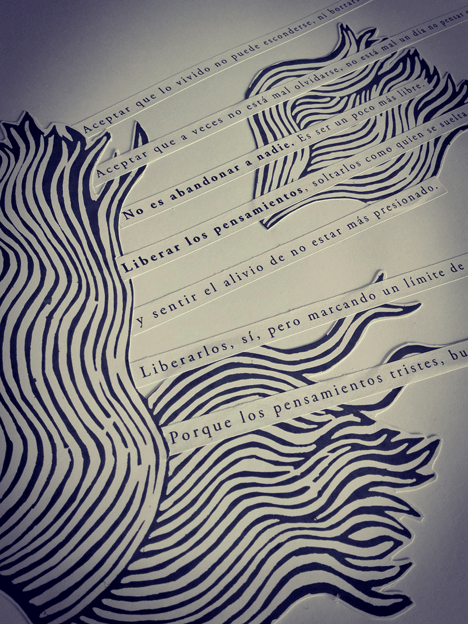 Aceptar que lo vivido no puede esconderse, ni borrar
Aceptar que a veces no está mal olvidarse, no está mal un día no pensar
No es abandonar a nadie. Es ser un poco más libre.
Liberar los pensamientos, soltarlos como quien se suelta
y sentir el alivio de no estar más presionado.
Liberarlos, sí, pero marcando un límite de
Porque los pensamientos tristes, bu